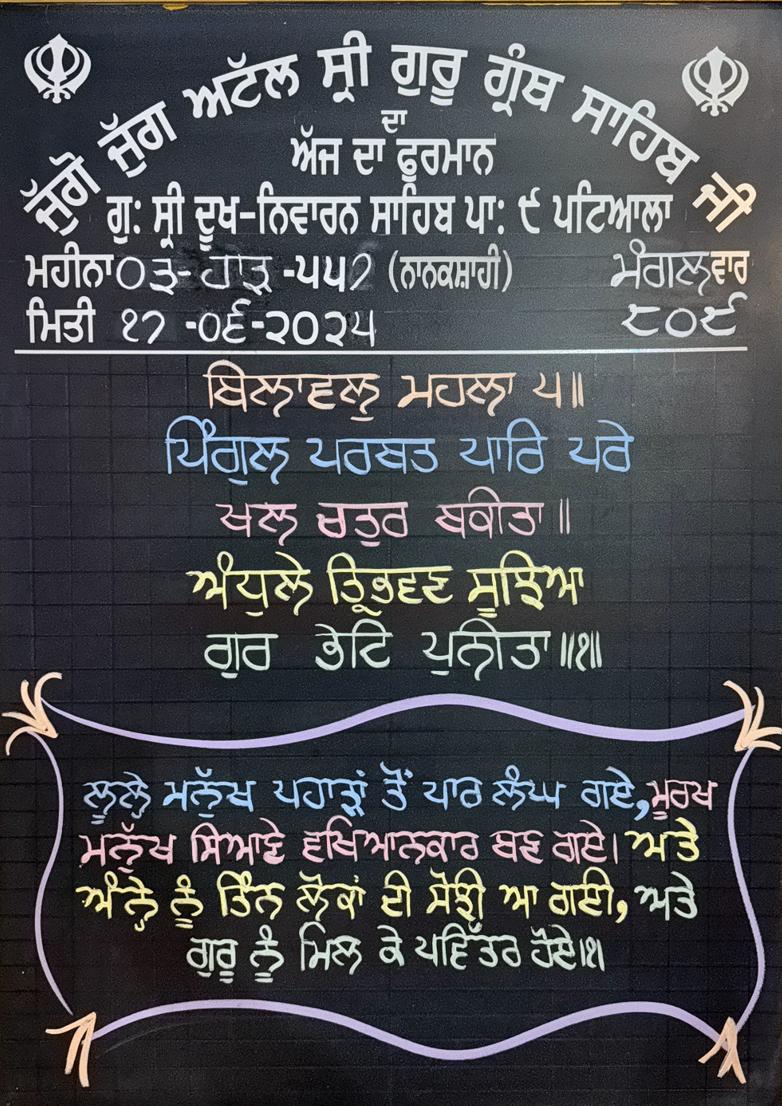 ਜੁੱਗੋ ਜੁੱਗ ਅਟੱਲ ਸ੍ਰੀ ਗੁਰੂ ਗ੍ਰੰਥ ਸਾਹਿਬ ਜੀ
ਦਾ
ਅੱਜ ਦਾ ਫੁਰਮਾਨ
ਗੁ: ਸ੍ਰੀ ਦੂਖ-ਨਿਵਾਰਨ ਸਾਹਿਬ ਪਾ: ੯ ਪਟਿਆਲਾ
ਮਹੀਨਾ ੦੩-ਹਾੜ -੫੫੭ (ਨਾਨਕਸ਼ਾਹੀ) ਮੰਗਲਵਾਰ
ਮਿਤੀ ੧੭ -੦੬-੨੦੨੫ ੮੦੯
ਬਿਲਾਵਲੁ ਮਹਲਾ ੫॥
ਪਿੰਗੁਲ ਪਰਬਤ ਪਾਰਿ ਪਰੇ
ਖਲ ਚਤੁਰ ਬਕੀਤਾ॥
ਅੰਧੁਲੇ ਤ੍ਰਿਭਵਣ ਸੂਝਿਆ
ਗੁਰ ਭੇਟਿ ਪੁਨੀਤਾ॥੧॥
ਲੂਲੇ ਮਨੁੱਖ ਪਹਾੜਾਂ ਤੋਂ ਪਾਰ ਲੰਘ ਗਏ, ਮੂਰਖ
ਮਨੁੱਖ ਸਿਆਣੇ ਵਖਿਆਨਕਾਰ ਬਣ ਗਏ। ਅਤੇ
ਅੰਨ੍ਹੇ ਨੂੰ ਤਿੰਨ ਲੋਕਾਂ ਦੀ ਸੋਝੀ ਆ ਗਈ, ਅਤੇ
ਗੁਰੂ ਨੂੰ ਮਿਲ ਕੇ ਪਵਿੱਤਰ ਹੋਏ।੧।